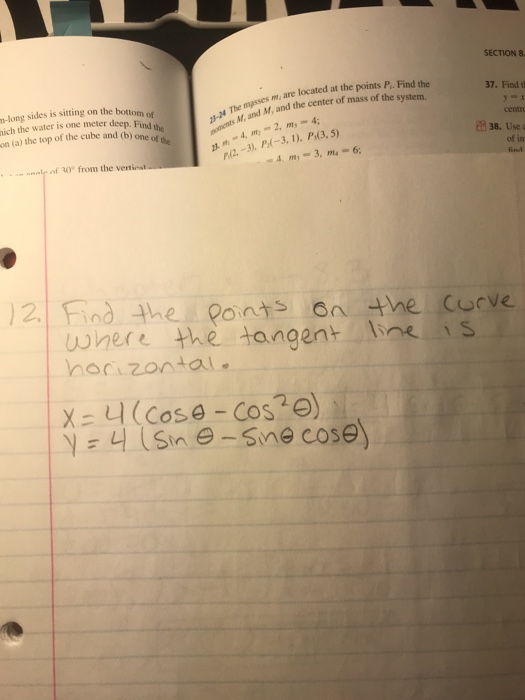 SECTION 8.
n-long sides is sitting on the bottom of
nich the water is one meter deep. Find the
on (a) the top of the cube and (b) one of the
of 30° from the vertical
23-24 The masses mᵢ are located at the points Pᵢ. Find the
moments Mₓ and Mᵧ and the center of mass of the system.
23. m₁ = 4, m₂ = 2, m₃ = 4;
P₁(2, -3), P₂(-3, 1), P₃(3, 5)
m₃ = 3, m₄ = 6;
37. Find
y = x
centro
38. Use
of
find
12. Find the points on the curve
where the tangent line is
horizontal.
X = 4(cosθ - cos²θ)
Y = 4(sin θ - sinθ cosθ)